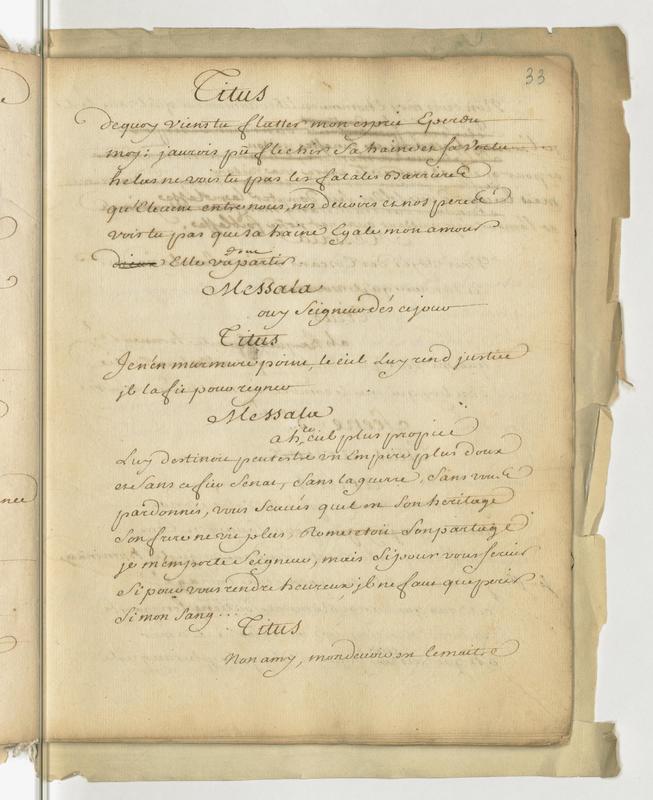 33
Titus
de quoy viens tu flatter mon esprit Eperdu
moy: jaurois pû flechir sa haine et sa vertu
helas ne vois tu pas les fatales barrieres
qu'Eleuent entre nous, nos deuoirs et nos peres
vois tu pas que sa haine Egale mon amour
donc
dieux Elle va partir
Messala
ouy Seigneur dés ce jour
Titus
Je n'en murmure point, le ciel Luy rend justice
jl la fit pour regner
Messala
ah, ce ciel plus propice
Luy destinoit peutestre un Empire plus doux
et sans ce fier Senat, sans la guerre, sans vous
pardonnés, vous scaués quel est son heritage
son frere ne vit plus, Rome etoit son partage
je m'emporte Seigneur, mais si pour vous seruir
si pour vous rendre heureux, jl ne faut que perir
si mon sang...
Titus
Non amy, mon deuoir est le maitre